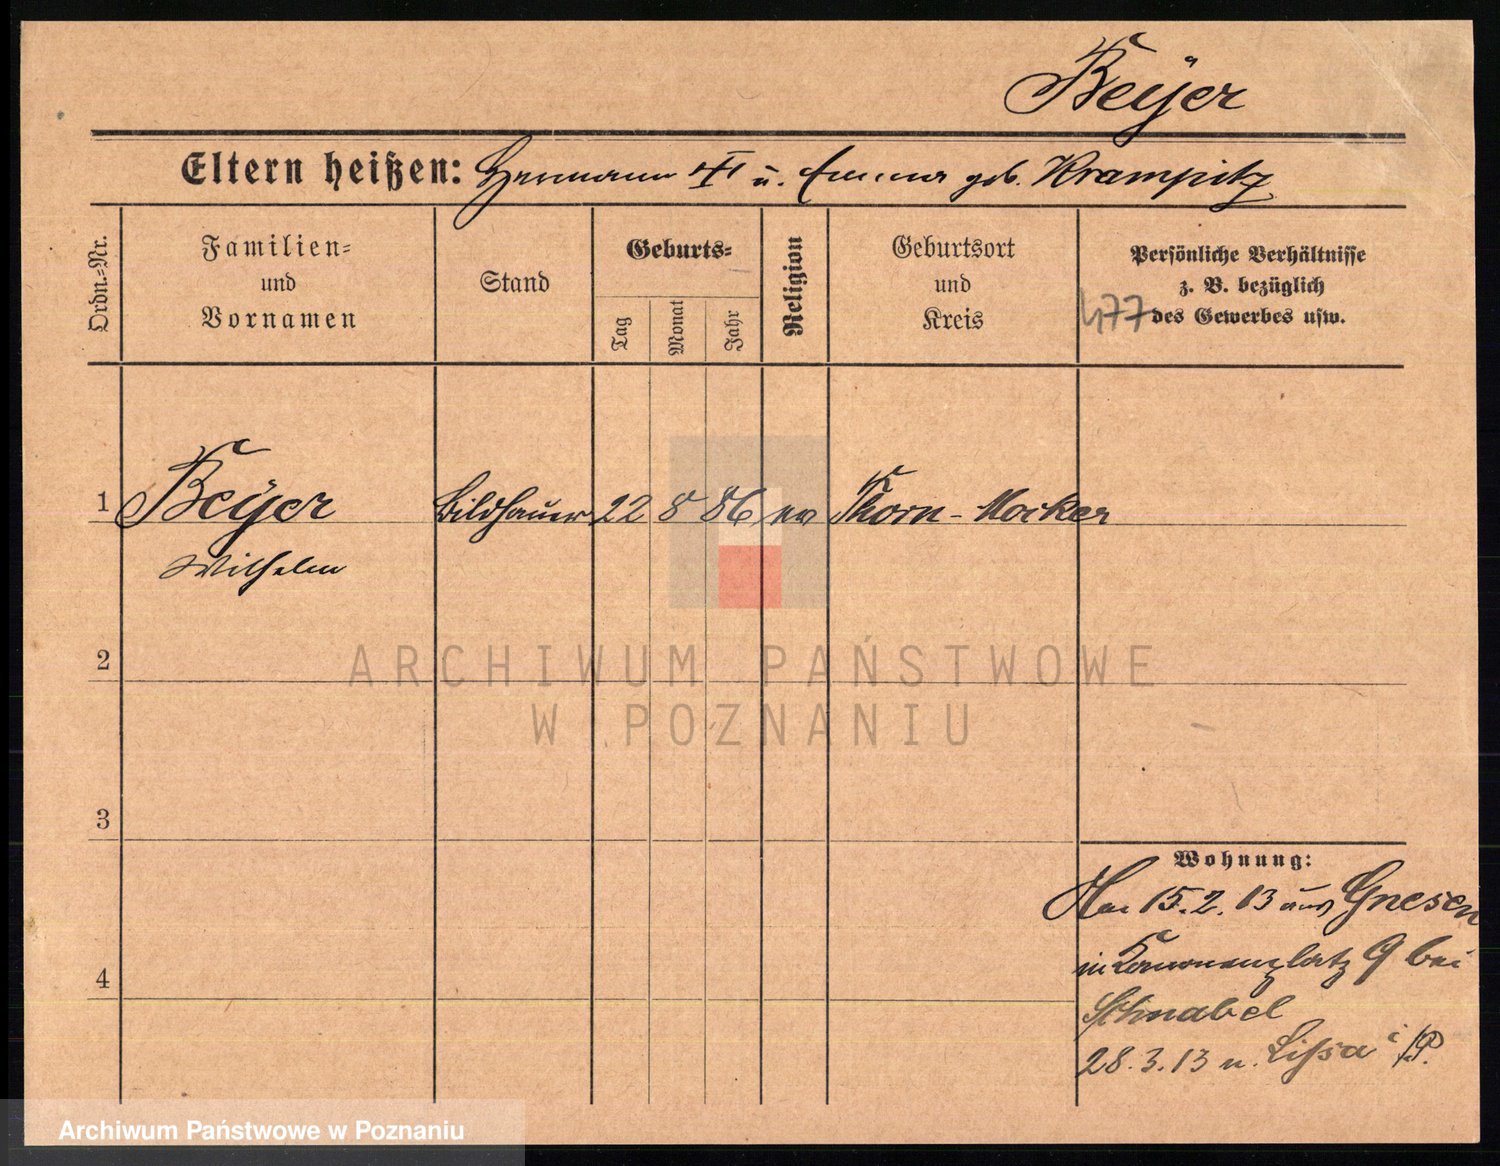 Beÿer
Eltern heißen: Hermann u. Emma geb. Krampitz
Ordn.-Nr.
Familien-
und
Vornamen
Stand
Geburts-
Tag
Monat
Jahr
Religion
Geburtsort
und
Kreis
Persönliche Verhältnisse
z. B. bezüglich
des Gewerbes usw.
477
1 Beÿer Bildhauer 22 8 86 ev Thorn-Mocker
Wilhelm
2
3
4
Wohnung:
15.2.13 aus Gnesen
in Kanonenplatz 9 bei
Schnabel
28.3.13 n. Lissa i/P.
ARCHIWUM PAŃSTWOWE
W POZNANIU
Archiwum Państwowe w Poznaniu